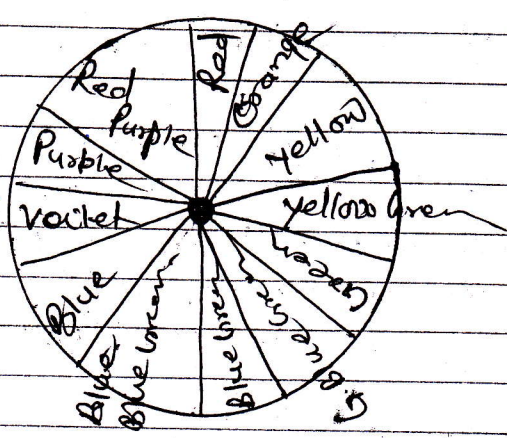 Red
Orange
Yellow
Yellow Green
Green
G. Blue Green
Blue Green
Blue Blue Green
Blue
Voilet
Purple
Red Purple